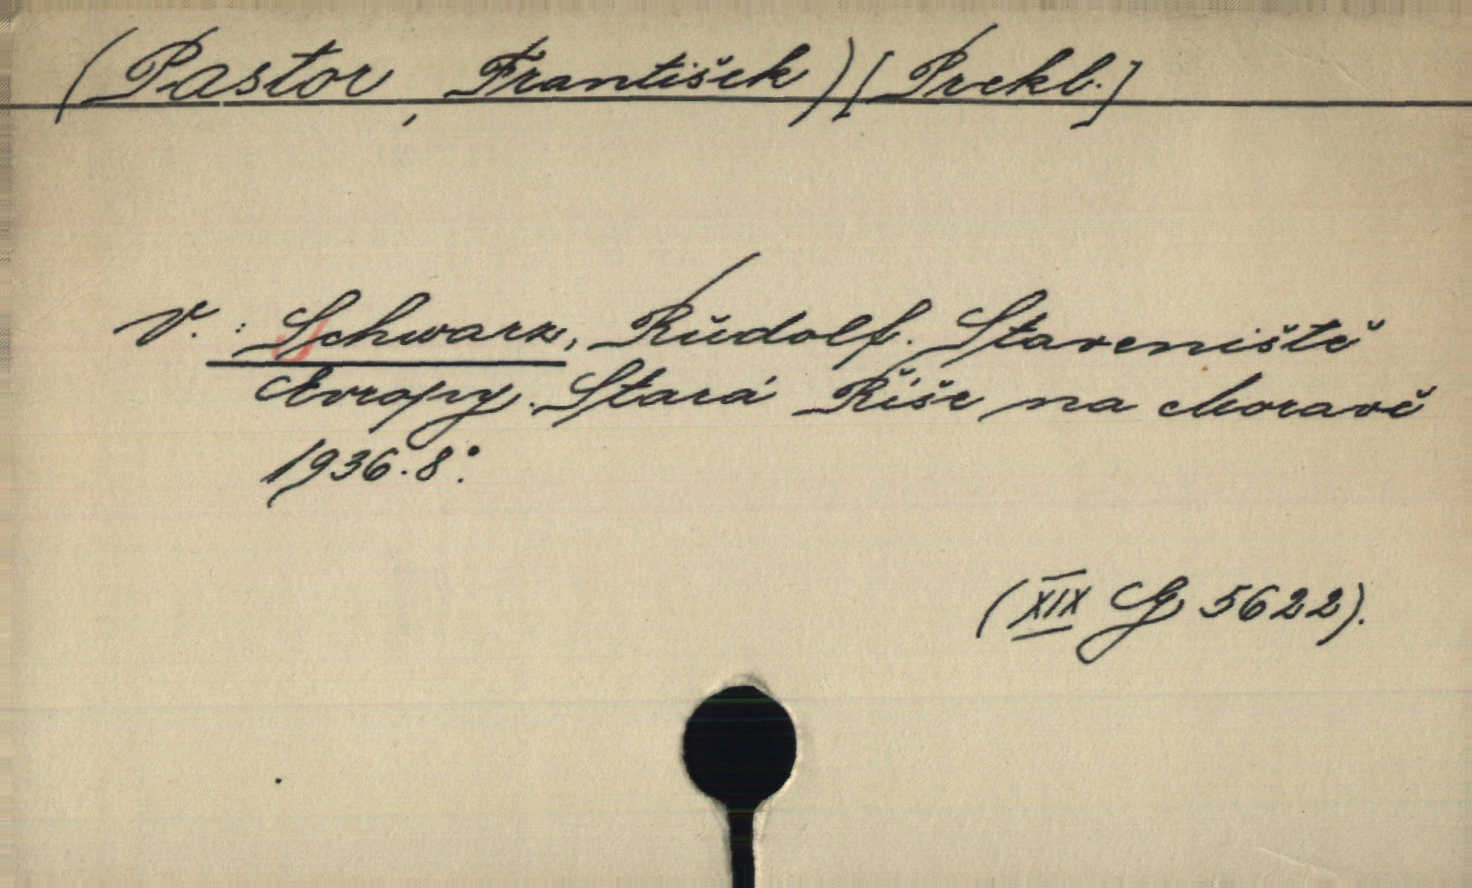 (Pastor, František) [Překl.]
V.: Schwarz, Rudolf. Staveniště
Evropy. Stará Říše na Moravě
1936. 8°.
(XIX G 5622).